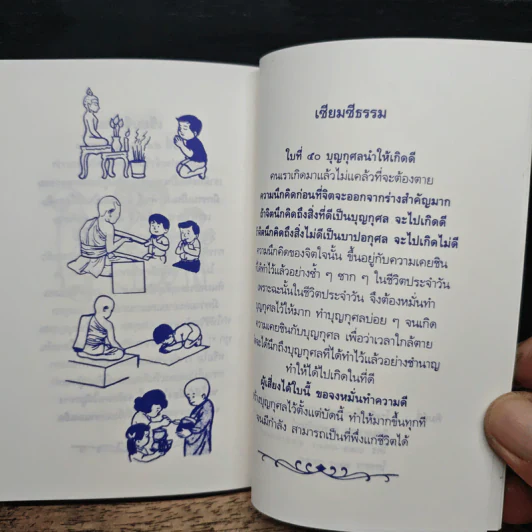 เซียมซีธรรม
ใบที่ ๔๐ บุญกุศลนำให้เกิดดี
คนเราเกิดมาแล้วไม่แคล้วที่จะต้องตาย
ความนึกคิดก่อนที่จิตจะออกจากร่างสำคัญมาก
ถ้าจิตนึกคิดถึงสิ่งที่ดีเป็นบุญกุศล จะไปเกิดดี
จิตนึกคิดถึงสิ่งไม่ดีเป็นบาปอกุศล จะไปเกิดไม่ดี
ความนึกคิดของจิตใจนั้น ขึ้นอยู่กับความเคยชิน
ได้ทำไว้แล้วอย่างซ้ำ ๆ ซาก ๆ ในชีวิตประจำวัน
เพราะฉะนั้นในชีวิตประจำวัน จึงต้องหมั่นทำ
บุญกุศลไว้ให้มาก ทำบุญกุศลบ่อย ๆ จนเกิด
ความเคยชินกับบุญกุศล เพื่อว่าเวลาใกล้ตาย
จะได้นึกถึงบุญกุศลที่ได้ทำไว้แล้วอย่างชำนาญ
ทำให้ได้ไปเกิดในที่ดี
ผู้เสี่ยงได้ใบนี้ ขอจงหมั่นทำความดี
สร้างบุญกุศลไว้ตั้งแต่บัดนี้ ทำให้มากขึ้นทุกที
จนมีกำลัง สามารถเป็นที่พึ่งแก่ชีวิตได้